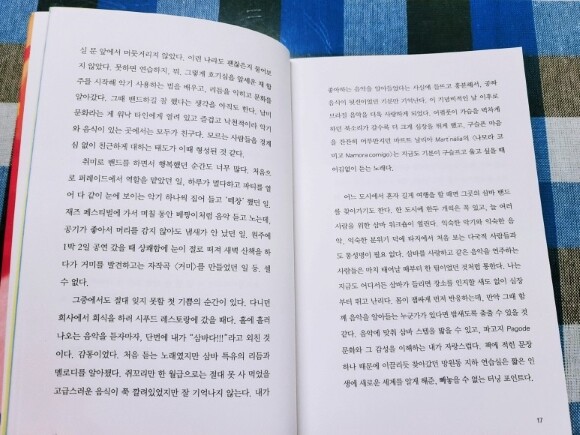 실 문 앞에서 머뭇거리지 않았다. 이런 나라도 괜찮은지 물어보
지 않았다. 못하면 연습하지, 뭐. 그렇게 호기심을 앞세운 채 합
주를 시작해 악기 사용하는 법을 배우고, 리듬을 익히고 문화를
알아갔다. 그때 밴드하길 잘 했다는 생각을 아직도 한다. 남미
문화라는 게 워낙 타인에게 열려 있고 즐겁고 낙천적이라 악기
와 음식이 있는 곳에서는 모두가 친구다. 모르는 사람들을 경계
심 없이 친근하게 대하는 태도가 이때 형성된 것 같다.
취미로 밴드를 하면서 행복했던 순간도 너무 많다. 처음으
로 퍼레이드에서 역할을 맡았던 일, 하루가 멀다하고 파티를 열
어 다 같이 눈에 보이는 악기 하나씩 집어 들고 '떼창' 했던 일,
재즈 페스티벌에 가서 며칠 동안 떼거리처럼 음악 듣고 노는데,
공기가 좋아서 머리를 감지 않아도 냄새가 안 났던 일, 원주에
1박 2일 공연 갔을 때 상쾌함에 눈이 절로 떠져 새벽 산책을 하
다가 거미를 발견하고는 자작곡 〈거미〉를 만들었던 일 등, 셀
수 없다.
그중에서도 절대 잊지 못할 첫 기쁨의 순간이 있다. 다니던
회사에서 회식을 하러 시푸드 레스토랑에 갔을 때다. 홀에 흘러
나오는 음악을 듣자마자, 단번에 내가 "삼바다!!!"라고 외친 것
이다. 감동이었다. 처음 듣는 노래였지만 삼바 특유의 리듬과
멜로디를 알아챘다. 쥐꼬리만 한 월급으로는 절대 못 사 먹었을
고급스러운 음식이 쭉 깔려있었지만 잘 기억나지 않는다. 내가
좋아하는 음악을 알아들었다는 사실에 들뜨고 흥분해서, 공짜
음식이 뒷전이었던 기분만 기억난다. 이 기념비적인 날 이후로
브라질 음악을 더욱 사랑하게 되었다. 어쿼폿이 가슴을 벅차게
하는 북소리가 갈수록 더 크게 심장을 뛰게 했고, 구슬픈 마음
을 잔잔히 어루만지던 마르트 날리아 Mart'nália의 〈나모라 코
미고 Namora comigo〉는 지금도 기분이 구슬프고 울고 싶을 때
어김없이 듣는 노래다.
어느 도시에서 혼자 길게 여행을 할 때면 그곳의 삼바 밴드
를 찾아가기도 한다. 한 도시에 한두 개씩은 꼭 있고, 늘 여러
사람을 위한 삼바 워크숍이 열린다. 익숙한 악기와 익숙한 음
악, 익숙한 분위기 안에 타지에서 처음 보는 다국적 사람들과
도 통성명이 필요 없다. 삼바를 사랑하고 같은 음악을 연주하는
사람들은 마치 태어날 때부터 한 팀이었던 것처럼 통한다. 나는
지금도 어디서든 삼바가 들리면 장소를 인지할 새도 없이 심장
부터 뛰고 난리다. 몸이 잽싸게 먼저 반응하는데, 만약 그때 함
께 음악을 알아듣는 누군가가 있다면 밤새도록 춤출 수 있을 것
같다. 음악에 맞춰 삼바 스텝을 밟을 수 있고, 파고지 Pagode
문화와 그 감성을 이해하는 내가 자랑스럽다. 책에 적힌 문장
하나 때문에 이끌리듯 찾아갔던 망원동 지하 연습실은 짧은 인
생에 새로운 세계를 알게 해준, 빼놓을 수 없는 터닝 포인트다.
17